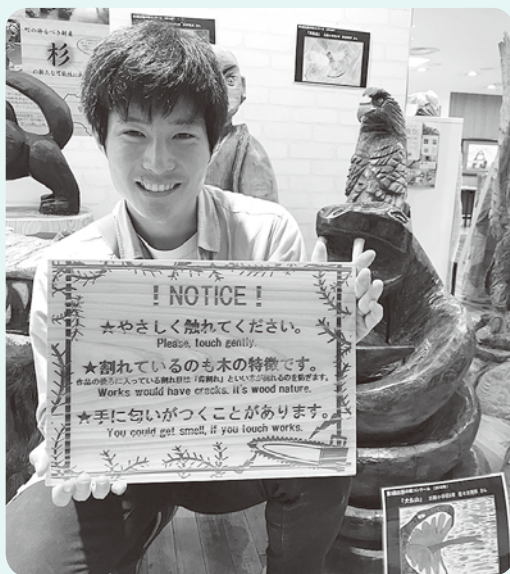 町の誇るべき財産
杉
の新たな可能性に
! NOTICE !
★やさしく触れてください。
Please, touch gently.
★割れているのも木の特徴です。
作品の後ろに入っている割れ目は「背割れ」といい木が割れるのを防ぎます。
Works would have cracks. It's wood nature.
★手に匂いがつくことがあります。
You could get smell, if you touch works.